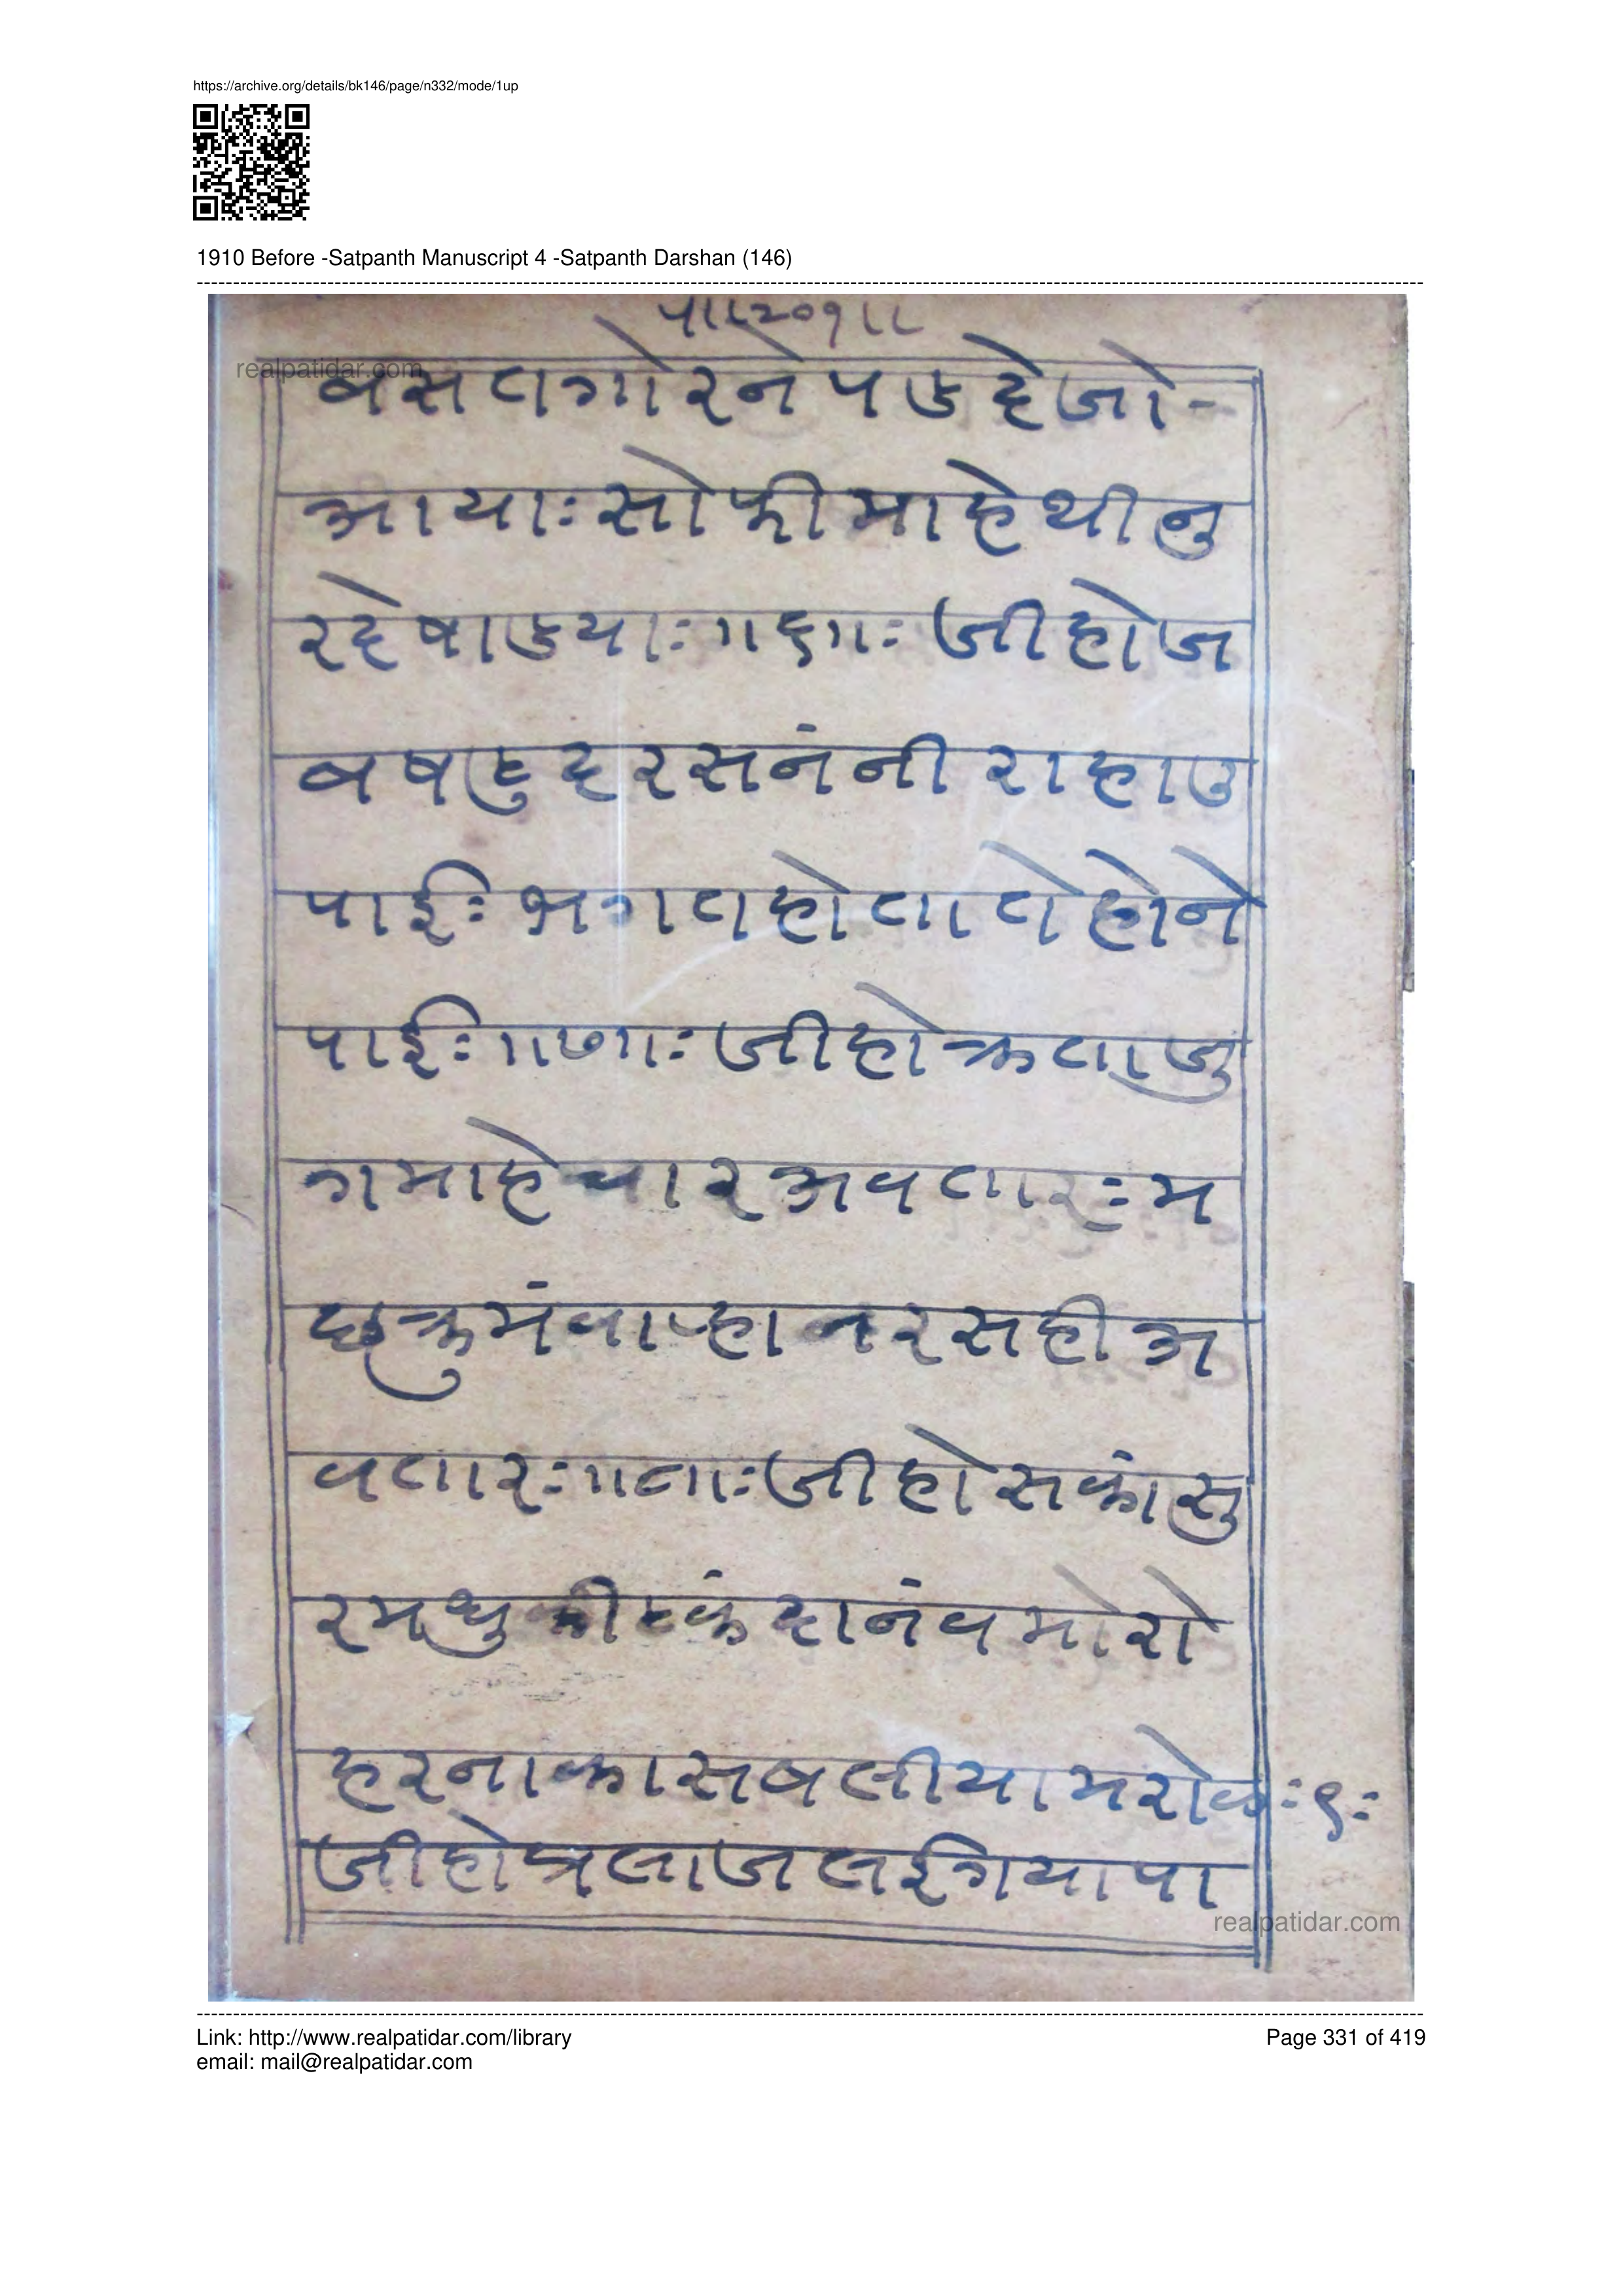 https://archive.org/details/bk146/page/n332/mode/1up
1910 Before -Satpanth Manuscript 4 -Satpanth Darshan (146)
पा।।२०१।।
realpatidar.com
बसतगोरने पडदे जो-
आयाः सो फीमाहे थी नु
रदे षाडयाः ॥६॥ः जी हो ज
ब षट्टु दरसनंनी राहा उ
पाईः भगत होता ते होने
पाईः ॥७॥ः जी हो क्रता जु
गमाहे चार अवतारः म
छ क्रुमं वाऱ्हा नरसही अ
वतारः ॥८॥ः जी हो सकांसु
र मधु कीटकं दानंव मोरो
हरनाकासब लीया मरोकः ९ः
जी हो त्रता ज लई गया पा
realpatidar.com
Link: http://www.realpatidar.com/library
email: mail@realpatidar.com
Page 331 of 419